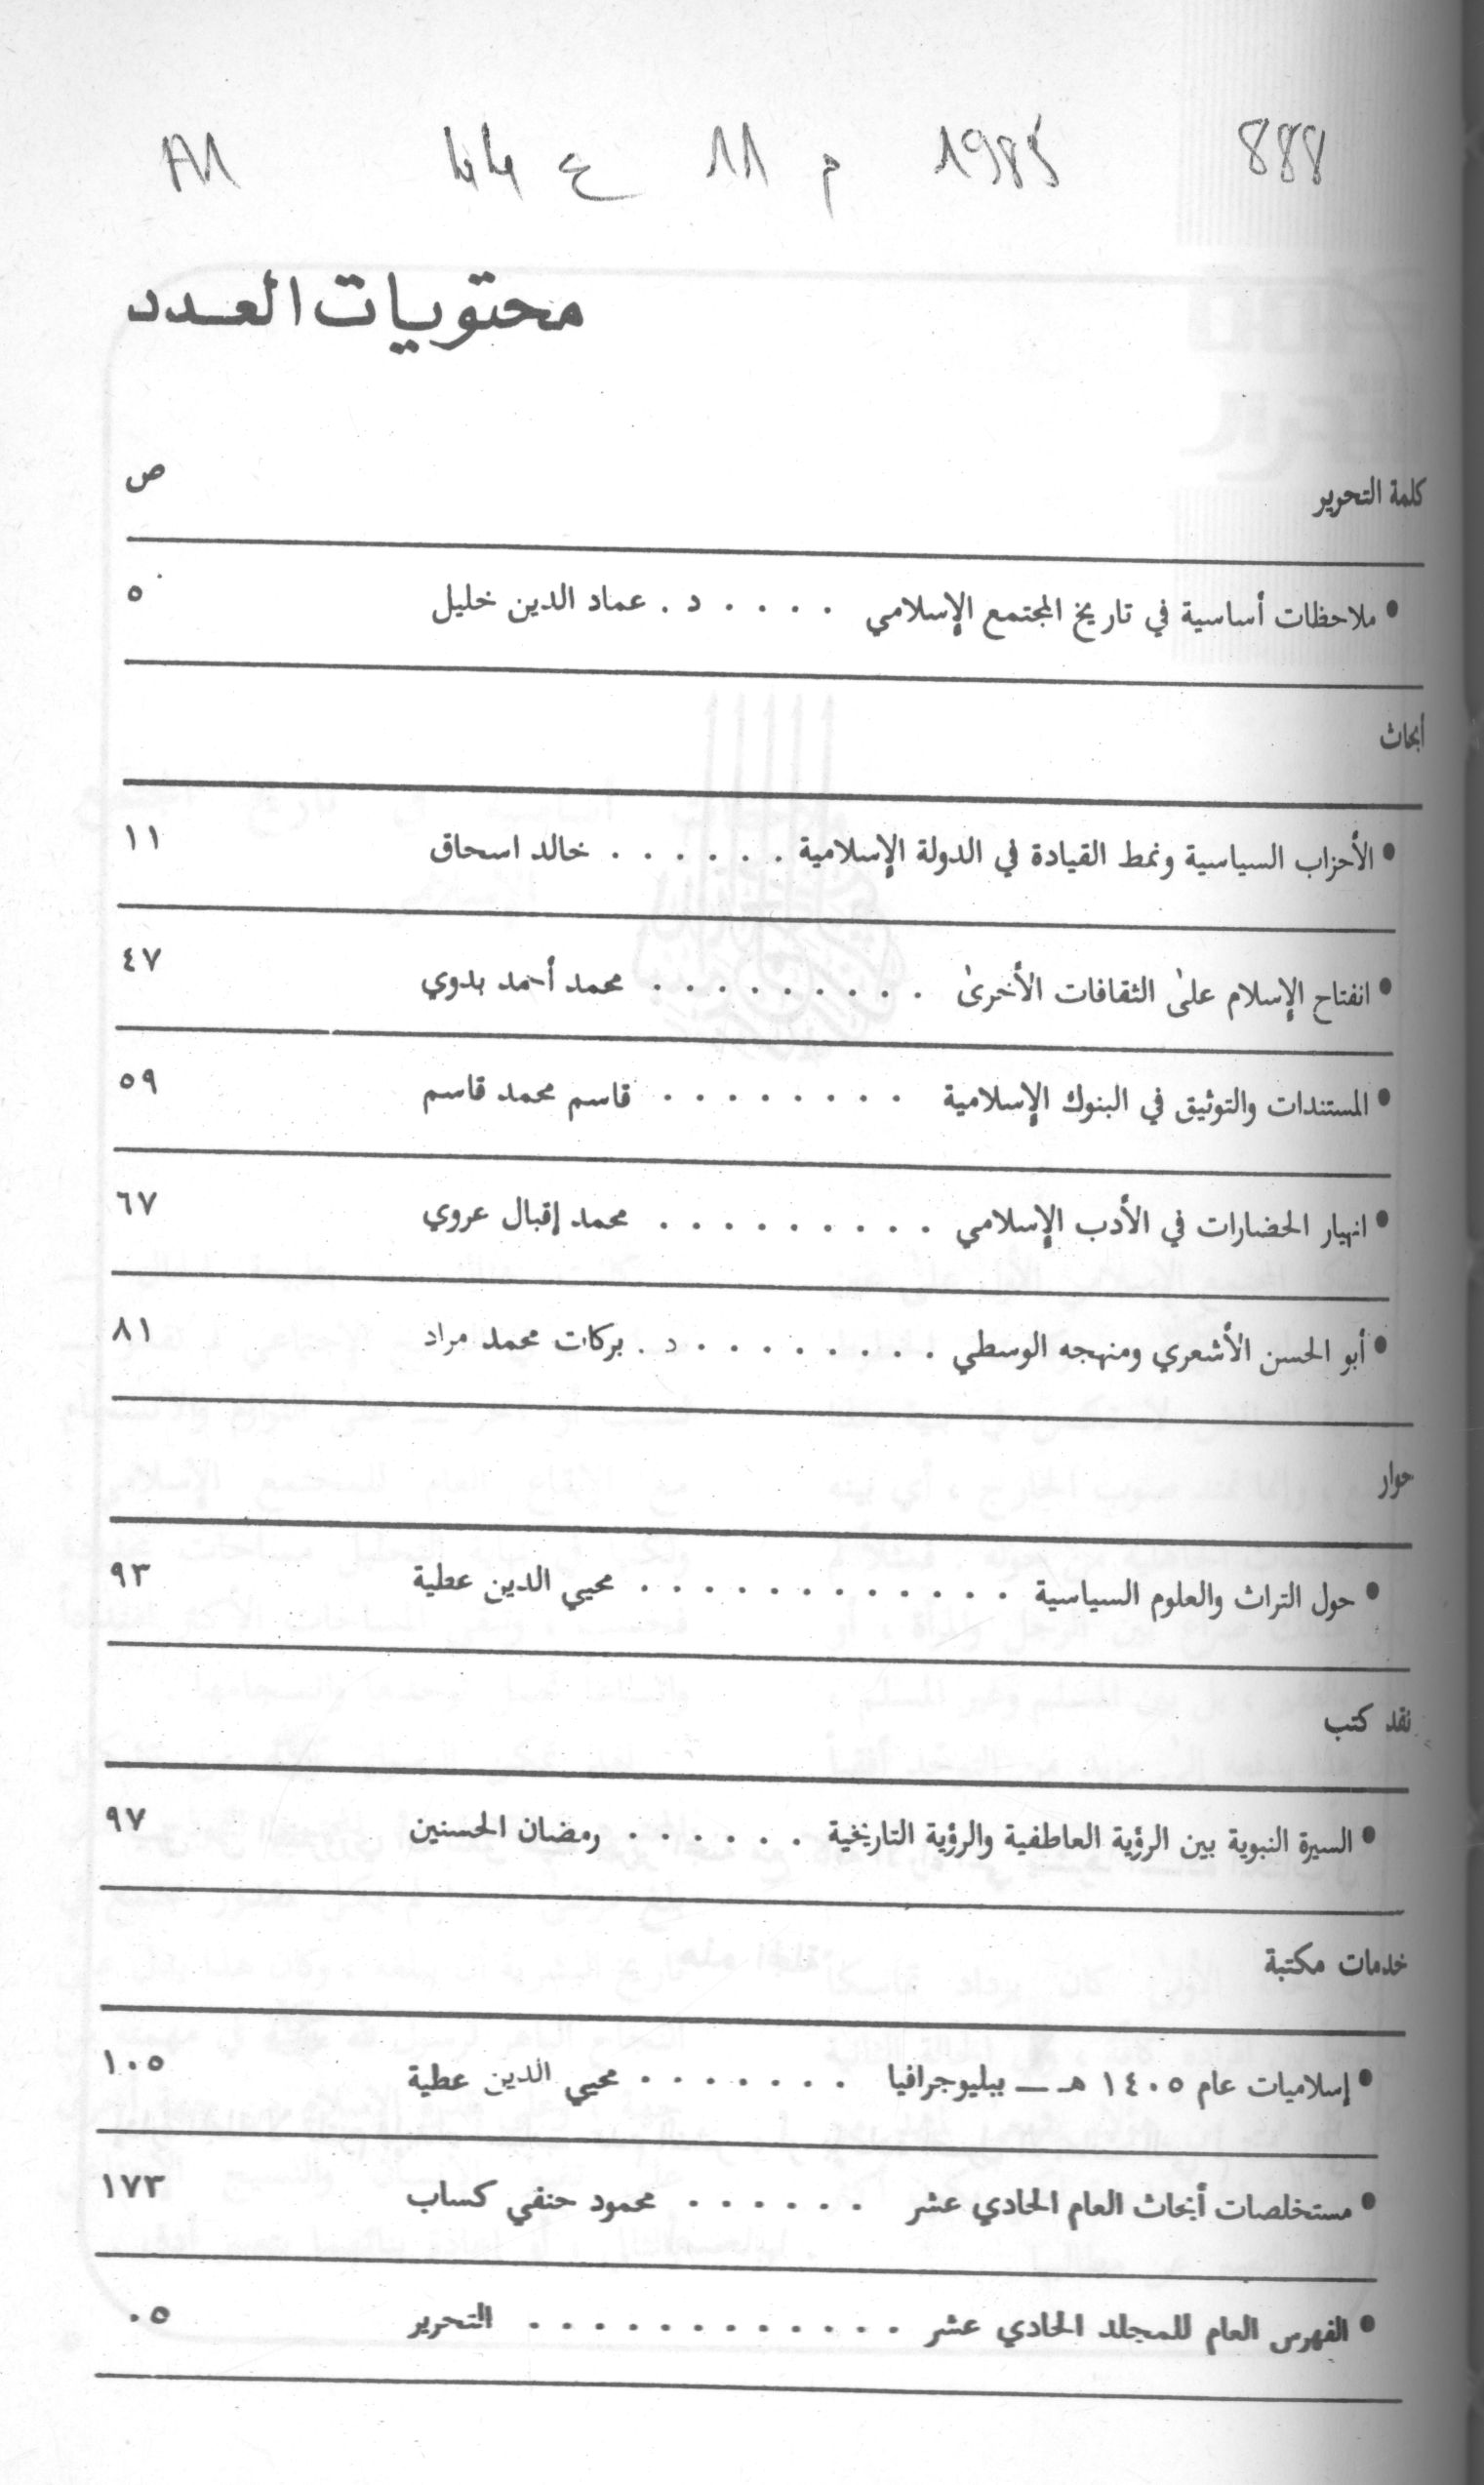 888 1985 م 11 ع 44 A1
محتويات العدد
كلمة التحرير ص
• ملاحظات أساسية في تاريخ المجتمع الإسلامي . . . . د . عماد الدين خليل ٥
أبحاث
• الأحزاب السياسية ونمط القيادة في الدولة الإسلامية . . . . . . خالد اسحاق ١١
• انفتاح الإسلام على الثقافات الأخرى . . . . . . . . . . محمد أحمد بدوي ٤٧
• المستندات والتوثيق في البنوك الإسلامية . . . . . . . . . قاسم محمد قاسم ٥٩
• انهيار الحضارات في الأدب الإسلامي . . . . . . . . . . محمد إقبال عروي ٦٧
• أبو الحسن الأشعري ومنهجه الوسطي . . . . . . . . . د . بركات محمد مراد ٨١
حوار
• حول التراث والعلوم السياسية . . . . . . . . . . . . . . محيي الدين عطية ٩٣
نقد كتب
• السيرة النبوية بين الرؤية العاطفية والرؤية التاريخية . . . . . . . رمضان الحسنين ٩٧
خدمات مكتبة
• إسلاميات عام ١٤٠٥ هـ ـــ ببليوجرافيا . . . . . . . . محيي الدين عطية ١٠٥
• مستخلصات أبحاث العام الحادي عشر . . . . . . محمود حنفي كساب ١٧٣
• الفهرس العام للمجلد الحادي عشر . . . . . . . . . . . . . . التحرير ٠٥